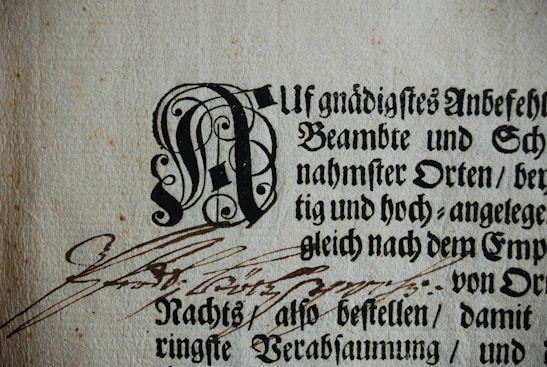 AUf gnädigſtes Anbefehl
Beambte und Sch
nahmſter Orten / bey
tig und hoch⸗angelege
gleich nach dem Emp
von Or
Nachts / alſo beſtellen / damit
ringſte Verabſaumung / und